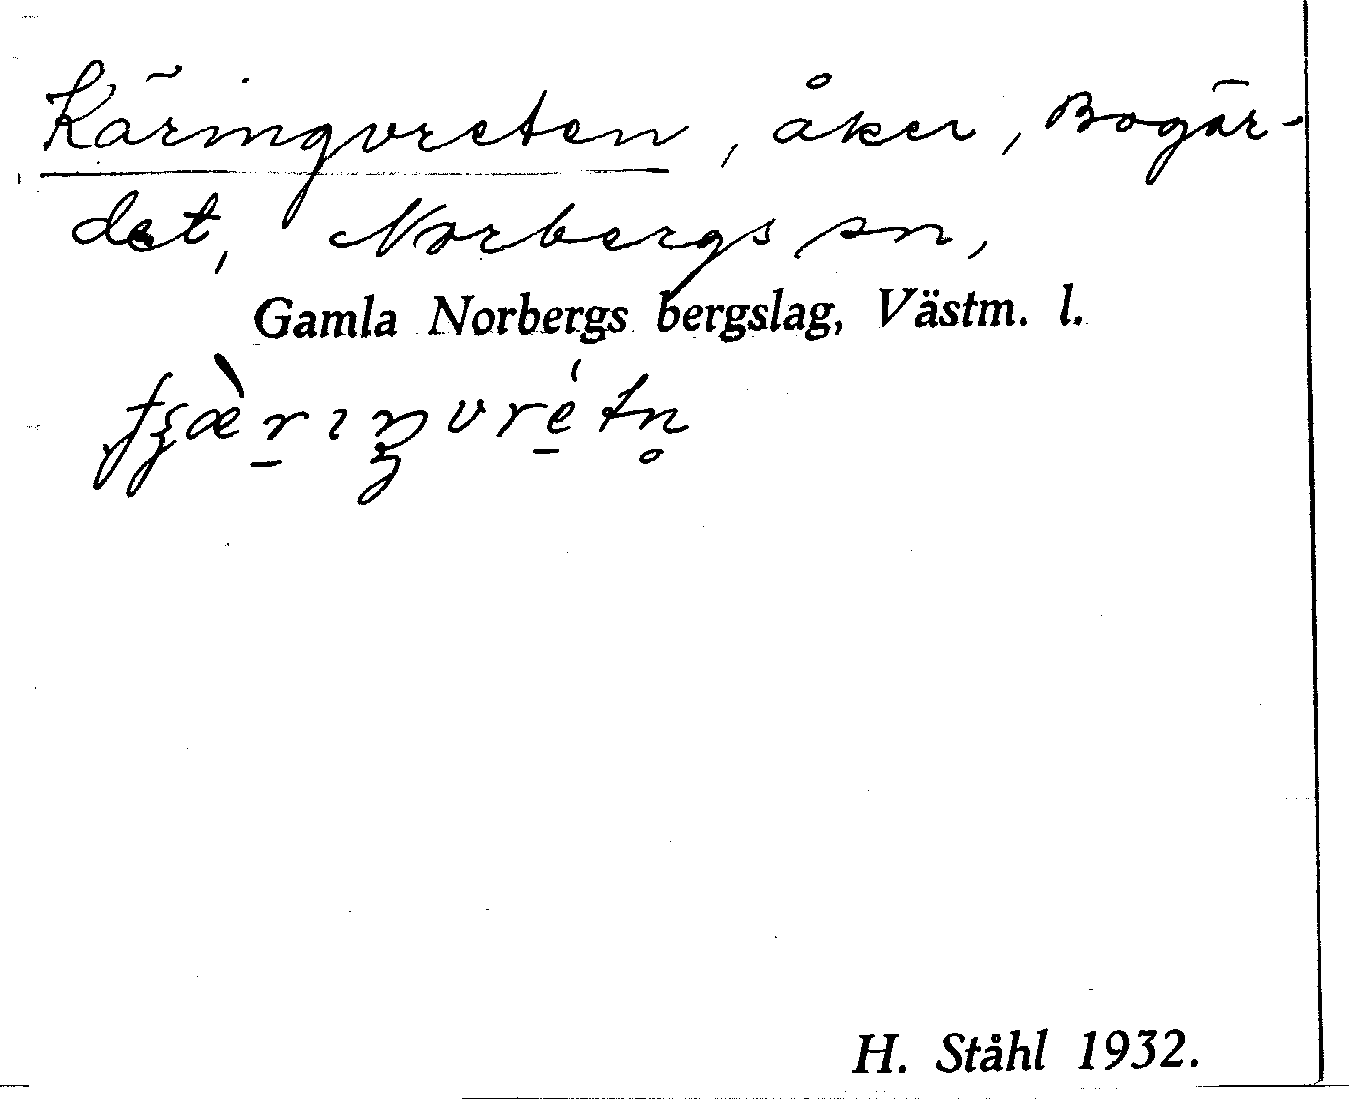 Käringvreten, åker, Bogär-
det, Norbergs sn,
Gamla Norbergs bergslag, Västm. l.
H. Ståhl 1932.